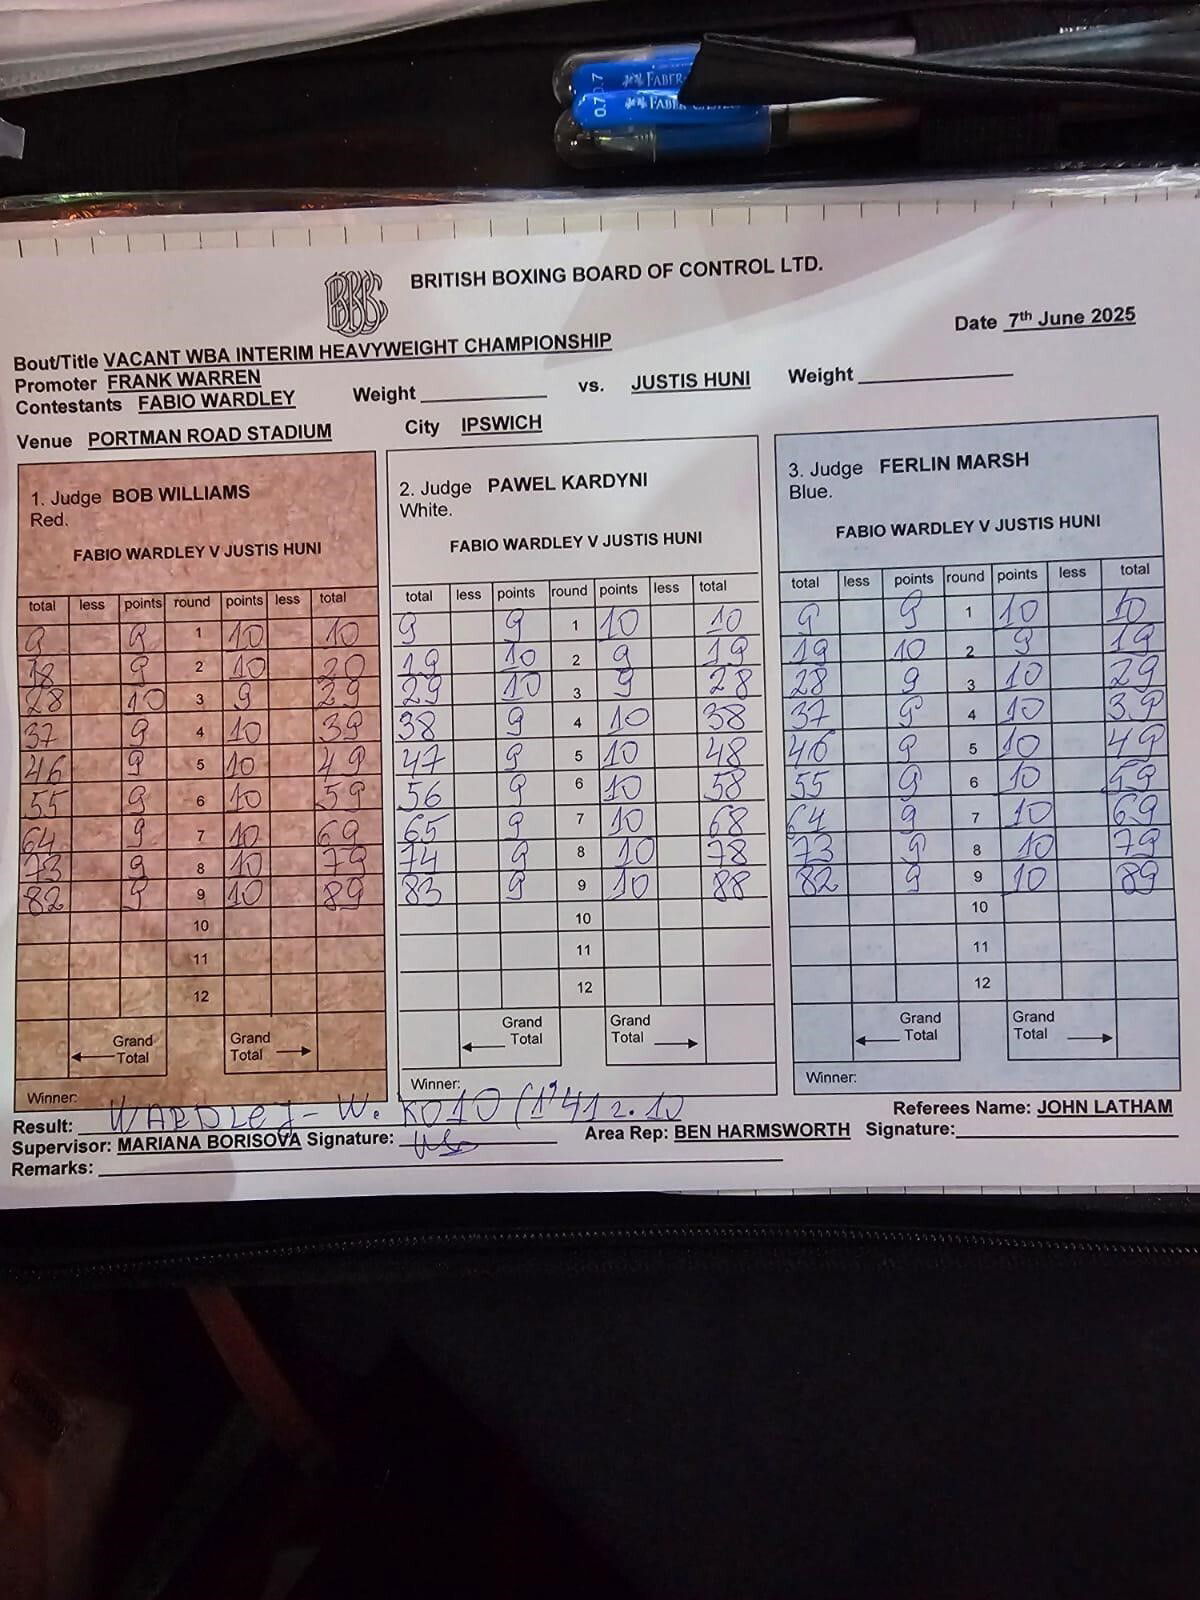 0.7 FABER-
0.7 FABER-CASTELL
BBBC
BRITISH BOXING BOARD OF CONTROL LTD.
Date 7th June 2025
Bout/Title VACANT WBA INTERIM HEAVYWEIGHT CHAMPIONSHIP
Promoter FRANK WARREN
Contestants FABIO WARDLEY Weight vs. JUSTIS HUNI Weight
Venue PORTMAN ROAD STADIUM City IPSWICH
1. Judge BOB WILLIAMS
Red.
FABIO WARDLEY V JUSTIS HUNI
total less points round points less total
9 9 1 10 10
18 9 2 10 20
28 10 3 9 29
37 9 4 10 39
46 9 5 10 49
55 9 6 10 59
64 9 7 10 69
73 9 8 10 79
82 9 9 10 89
10
11
12
Grand Grand
Total Total
Winner:
2. Judge PAWEL KARDYNI
White.
FABIO WARDLEY V JUSTIS HUNI
total less points round points less total
9 9 1 10 10
19 10 2 9 19
29 10 3 9 28
38 9 4 10 38
47 9 5 10 48
56 9 6 10 58
65 9 7 10 68
74 9 8 10 78
83 9 9 10 88
10
11
12
Grand Grand
Total Total
Winner:
3. Judge FERLIN MARSH
Blue.
FABIO WARDLEY V JUSTIS HUNI
total less points round points less total
9 9 1 10 10
19 10 2 9 19
28 9 3 10 29
37 9 4 10 39
46 9 5 10 49
55 9 6 10 59
64 9 7 10 69
73 9 8 10 79
82 9 9 10 89
10
11
12
Grand Grand
Total Total
Winner:
Result: WARDLEY - W. KO10 (1'41 r. 10 Referees Name: JOHN LATHAM
Supervisor: MARIANA BORISOVA Signature: Area Rep: BEN HARMSWORTH Signature:
Remarks: